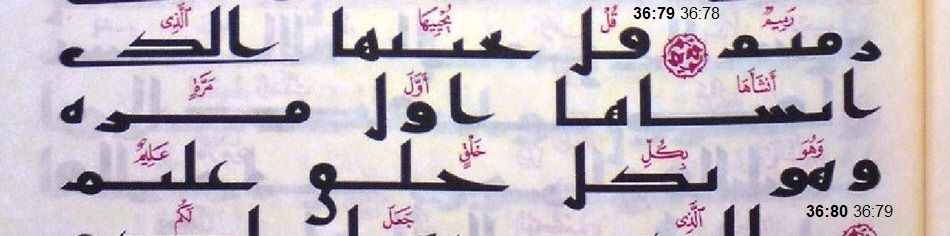 رَمِيمٌ 36:78 36:79 قُلْ يُحْيِيهَا ٱلَّذِى
رميم قل يحييها الذى
أَنشَأَهَا أَوَّلَ مَرَّةٍ
انشاها اول مره
وَهُوَ بِكُلِّ خَلْقٍ عَلِيمٌ
وهو بكل خلق عليم
36:80 36:79
ٱلَّذِى جَعَلَ لَكُم